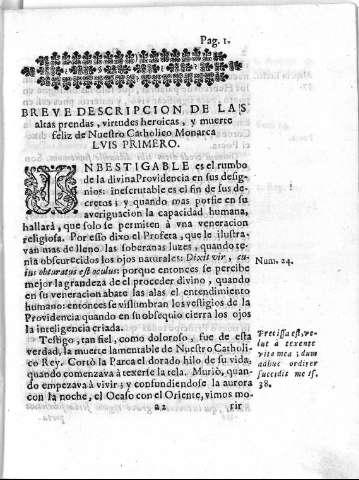 Pag. 1.
BREVE DESCRIPCION DE LAS
altas prendas, virtudes heroicas, y muerte
feliz de Nuestro Catholico Monarca
LVIS PRIMERO.
INBESTIGABLE es el rumbo
de la divina Providencia en sus desig-
nios: inescrutable es el fin de sus de-
cretos; y quando mas porfie en su
averiguacion la capacidad humana,
hallará, que solo se permiten à vna veneracion
religiosa. Por esso dixo el Profeta, que le ilustra-
van mas de lleno las soberanas luzes, quando te-
nia obscurecidos los ojos naturales: Dixit vir, cu-
ius obturatus est oculus: porque entonces se percibe
mejor la grandeza de el proceder divino, quando
en su veneracion abate las alas el entendimiento
humano: entonces se vislumbran los vestigios de la
Providencia quando en su obsequio cierra los ojos
la inteligencia criada.
Num. 24.
Testigo, tan fiel, como doloroso, fue de esta
verdad, la muerte lamentable de Nuestro Catholi-
co Rey. Cortò la Parca el dorado hilo de su vida,
quando començava à texerle la tela. Muriò, quan-
do empezava à vivir; y confundiendose la aurora
con la noche, el Ocaso con el Oriente, vimos mo-
Precissa est, ve-
lut à texente
vita mea; dum
adhuc ordirer
succidit me Is.
38.
a 2
rir